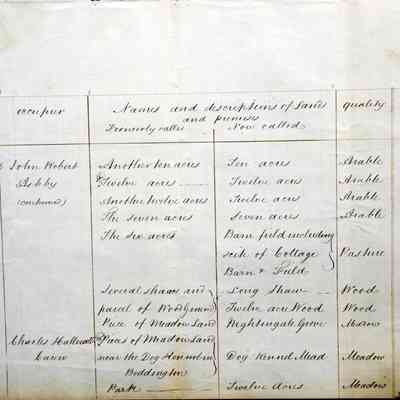 occupier Names and descriptions of Lands quality
and premises
Formerly called Now called
John Robert Another ten acres Ten acres Arable
Ashby Twelve acres Twelve acres Arable
(continued) Another twelve acres Twelve acres Arable
The seven acres Seven acres Arable
The six acres Barn field including
scite of Cottage Pasture
Barn & Field
Several shaws and Long Shaw Wood
parcel of Woodground Twelve acre Wood Wood
Piece of Meadow Land Nightingale Grove Meadow
Charles Pieces of Meadow Land
near the Dog Kennel in Dog Kennel Mead Meadow
Beddington
Park Twelve Acres Meadow